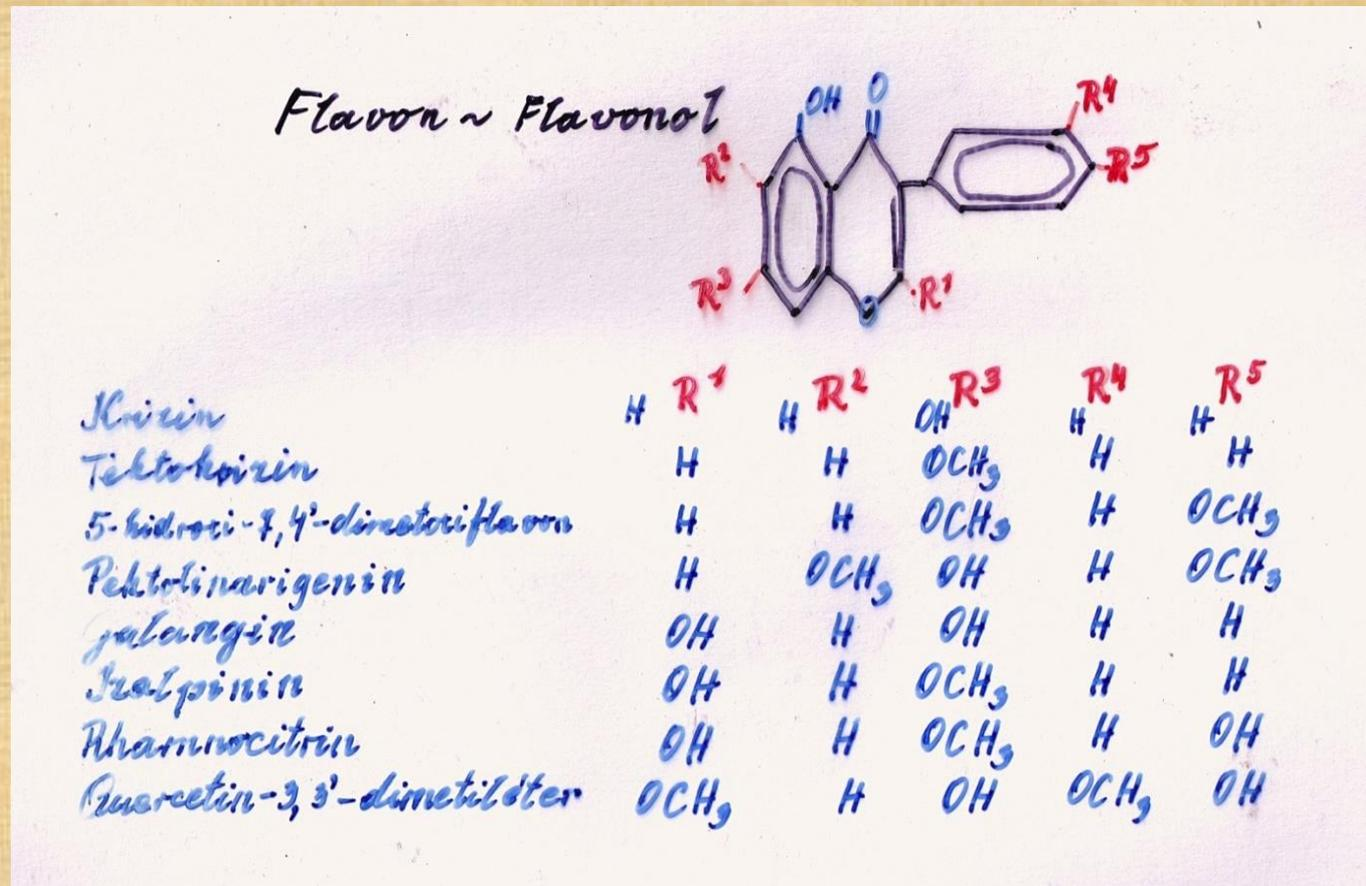 Flavon ~ Flavonol
OH O
R⁴
R²
R⁵
R³
R¹
O
R¹ R² R³ R⁴ R⁵
Krizin H H OH H H
Tektokrizin H H OCH₃ H H
5-hidroxi-7,4'-dimetoxiflavon H H OCH₃ H OCH₃
Pektolinarigenin H OCH₃ OH H OCH₃
Galangin OH H OH H H
Izalpinin OH H OCH₃ H H
Rhamnocitrin OH H OCH₃ H OH
Quercetin-3,3'-dimetiléter OCH₃ H OH OCH₃ OH